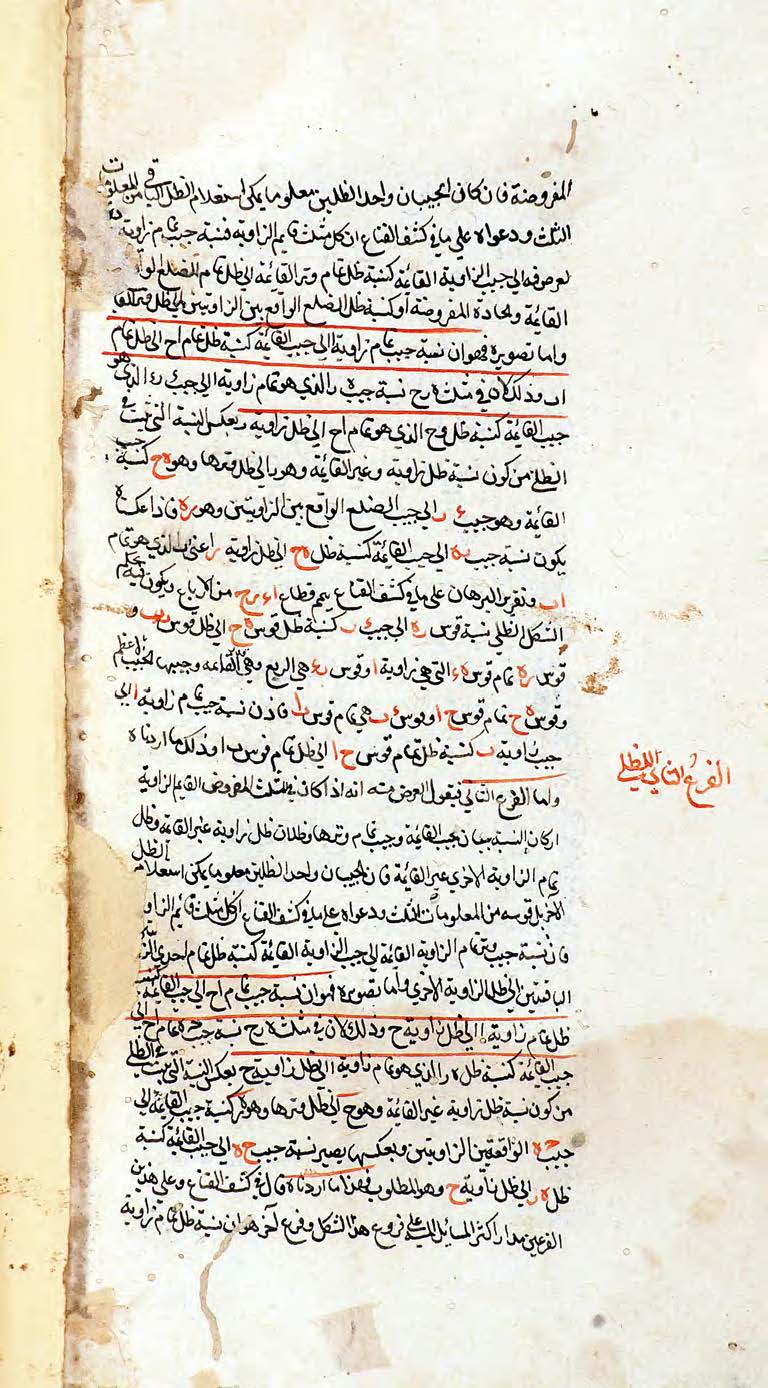 المفروضة فان كان الجيبان واحد الظلين معلوما يمكن استعلام الظل الباقي من المعلومات
الثلث ودعواه علي ما في كشف القناع ان كل مثلث قايم الزاوية فنسبة جيب تمام زاوية
الي جيب الزاوية القائمة كنسبة ظل تمام وتر القائمة الي ظل تمام الضلع
القائمة والحادة المفروضة او كنسبة ظل الضلع الواقع بين الزاويتين الي ظل وتر القا
واما تصويره فهو ان نسبة جيب تمام زاوية ا الي جيب القائمة كنسبة ظل تمام اح الي ظل تمام
اب وذلك لان في مثلث ه ر ح نسبة جيب ه ر الذي هو تمام زاوية ا الي جيب الذي هو
جيب القائمة كنسبة ظل ح الذي هو تمام اح الي ظل زاوية ر بعكس النسبة التي ثبت في
الظلي من كون نسبة ظل زاوية ر غير القائمة وهو ر الي ظل وترها وهو ه ح كنسبة جيب
القائمة وهو جيب ر الي جيب الضلع الواقع بين الزاويتين وهو ره فاذا عكسناه
يكون نسبة جيب ره الي جيب القائمة كنسبة ظل ه ح الي ظل زاوية ر اعني الذي هو تمام
اب وتقرير البرهان علي ما في كشف القناع يتم قطاع من الارباع ويكون نسبة بحكم
الشكل الظلي نسبة قوس ره الي جيب كنسبة ظل قوس ه ح الي ظل قوس و
قوس ره تمام قوس ه التي هي زاوية ا وقوس هي الربع وهي القائمة وجيبها الجيب الاعظم
وقوس ه ح تمام قوس ح ا وقوس هي تمام قوس ا فاذن نسبة جيب تمام زاوية ا الي
جيب زاوية ب كنسبة ظل تمام قوس ح ا الي ظل تمام قوس ب ا وذلك ما اردناه
واما الفرع الثاني فيقول الغرض منه انه اذا كان في المثلث المفروض القايم الزاوية
اركان النسبة جيبان جيب القائمة وجيب تمام وترها وظلان ظل زاوية غير القائمة وظل
تمام الزاوية الاخري غير القائمة فان كان الجيبان واحد الظلين معلوما يمكن استعلام الظل
الاخر بل قوسه من المعلومات الثلث ودعواه علي ما في كشف القناع ان كل مثلث قايم الزاو
فان نسبة جيب وتر تمام الزاوية القائمة الي جيب الزاوية القائمة كنسبة ظل تمام احدي
الباقيتين الي ظل الزاوية الاخري واما تصويره فهو ان نسبة جيب تمام اح الي جيب القائمة كنسبة
ظل تمام زاوية ا الي ظل زاوية ح وذلك لان في مثلث ه ر ح نسبة جيب ح ه تمام اح الي
جيب القائمة كنسبة ظل ه ر الذي هو تمام زاوية ا الي ظل زاوية ح بعكس النسبة التي ثبت في الظلي
من كون نسبة ظل زاوية غير القائمة وهو ح الي ظل وترها وهو ه ر كنسبة جيب القائمة الي
جيب ح ه الواقعة بين الزاويتين وبعكسها يصير نسبة جيب ح ه الي جيب القائمة كنسبة
ظل ه ر الي ظل زاوية ح وهو المطلوب فهذا ما اردناه قال في كشف القناع وعلي هذين
الفرعين مدار اكثر المسائل المبنية علي فروع هذا الشكل وفرع آخر هو ان نسبة ظل تمام زاوية
الفرع الثاني للظلي